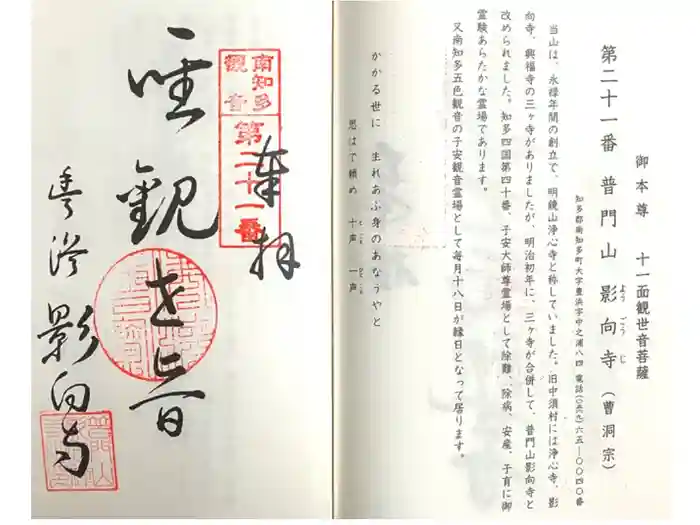 御本尊　十一面観世音菩薩
第二十一番 普門山 影向寺（曹洞宗）
ようごうじ
知多郡南知多町大字豊浜字中之浦八四 電話（〇五六九）六五―〇〇四〇番
当山は、永禄年間の創立で、明鏡山浄心寺と称していました。旧中須村には浄心寺、影
向寺、興福寺の三ヶ寺がありましたが、明治初年に、三ヶ寺が合併して、普門山影向寺と
改められました。知多四国第四十番、子安大師尊霊場として除難、除病、安産、子育に御
霊験あらたかな霊場であります。
又南知多五色観音の子安観音霊場として毎月十八日が縁日となって居ります。
かかる世に 生れあふ身のあなうやと
思はで頼め 十声 一声
とこえ ひとこえ
奉拝
南知多
観音
第二十一番
聖観世音
豊浜 影向寺